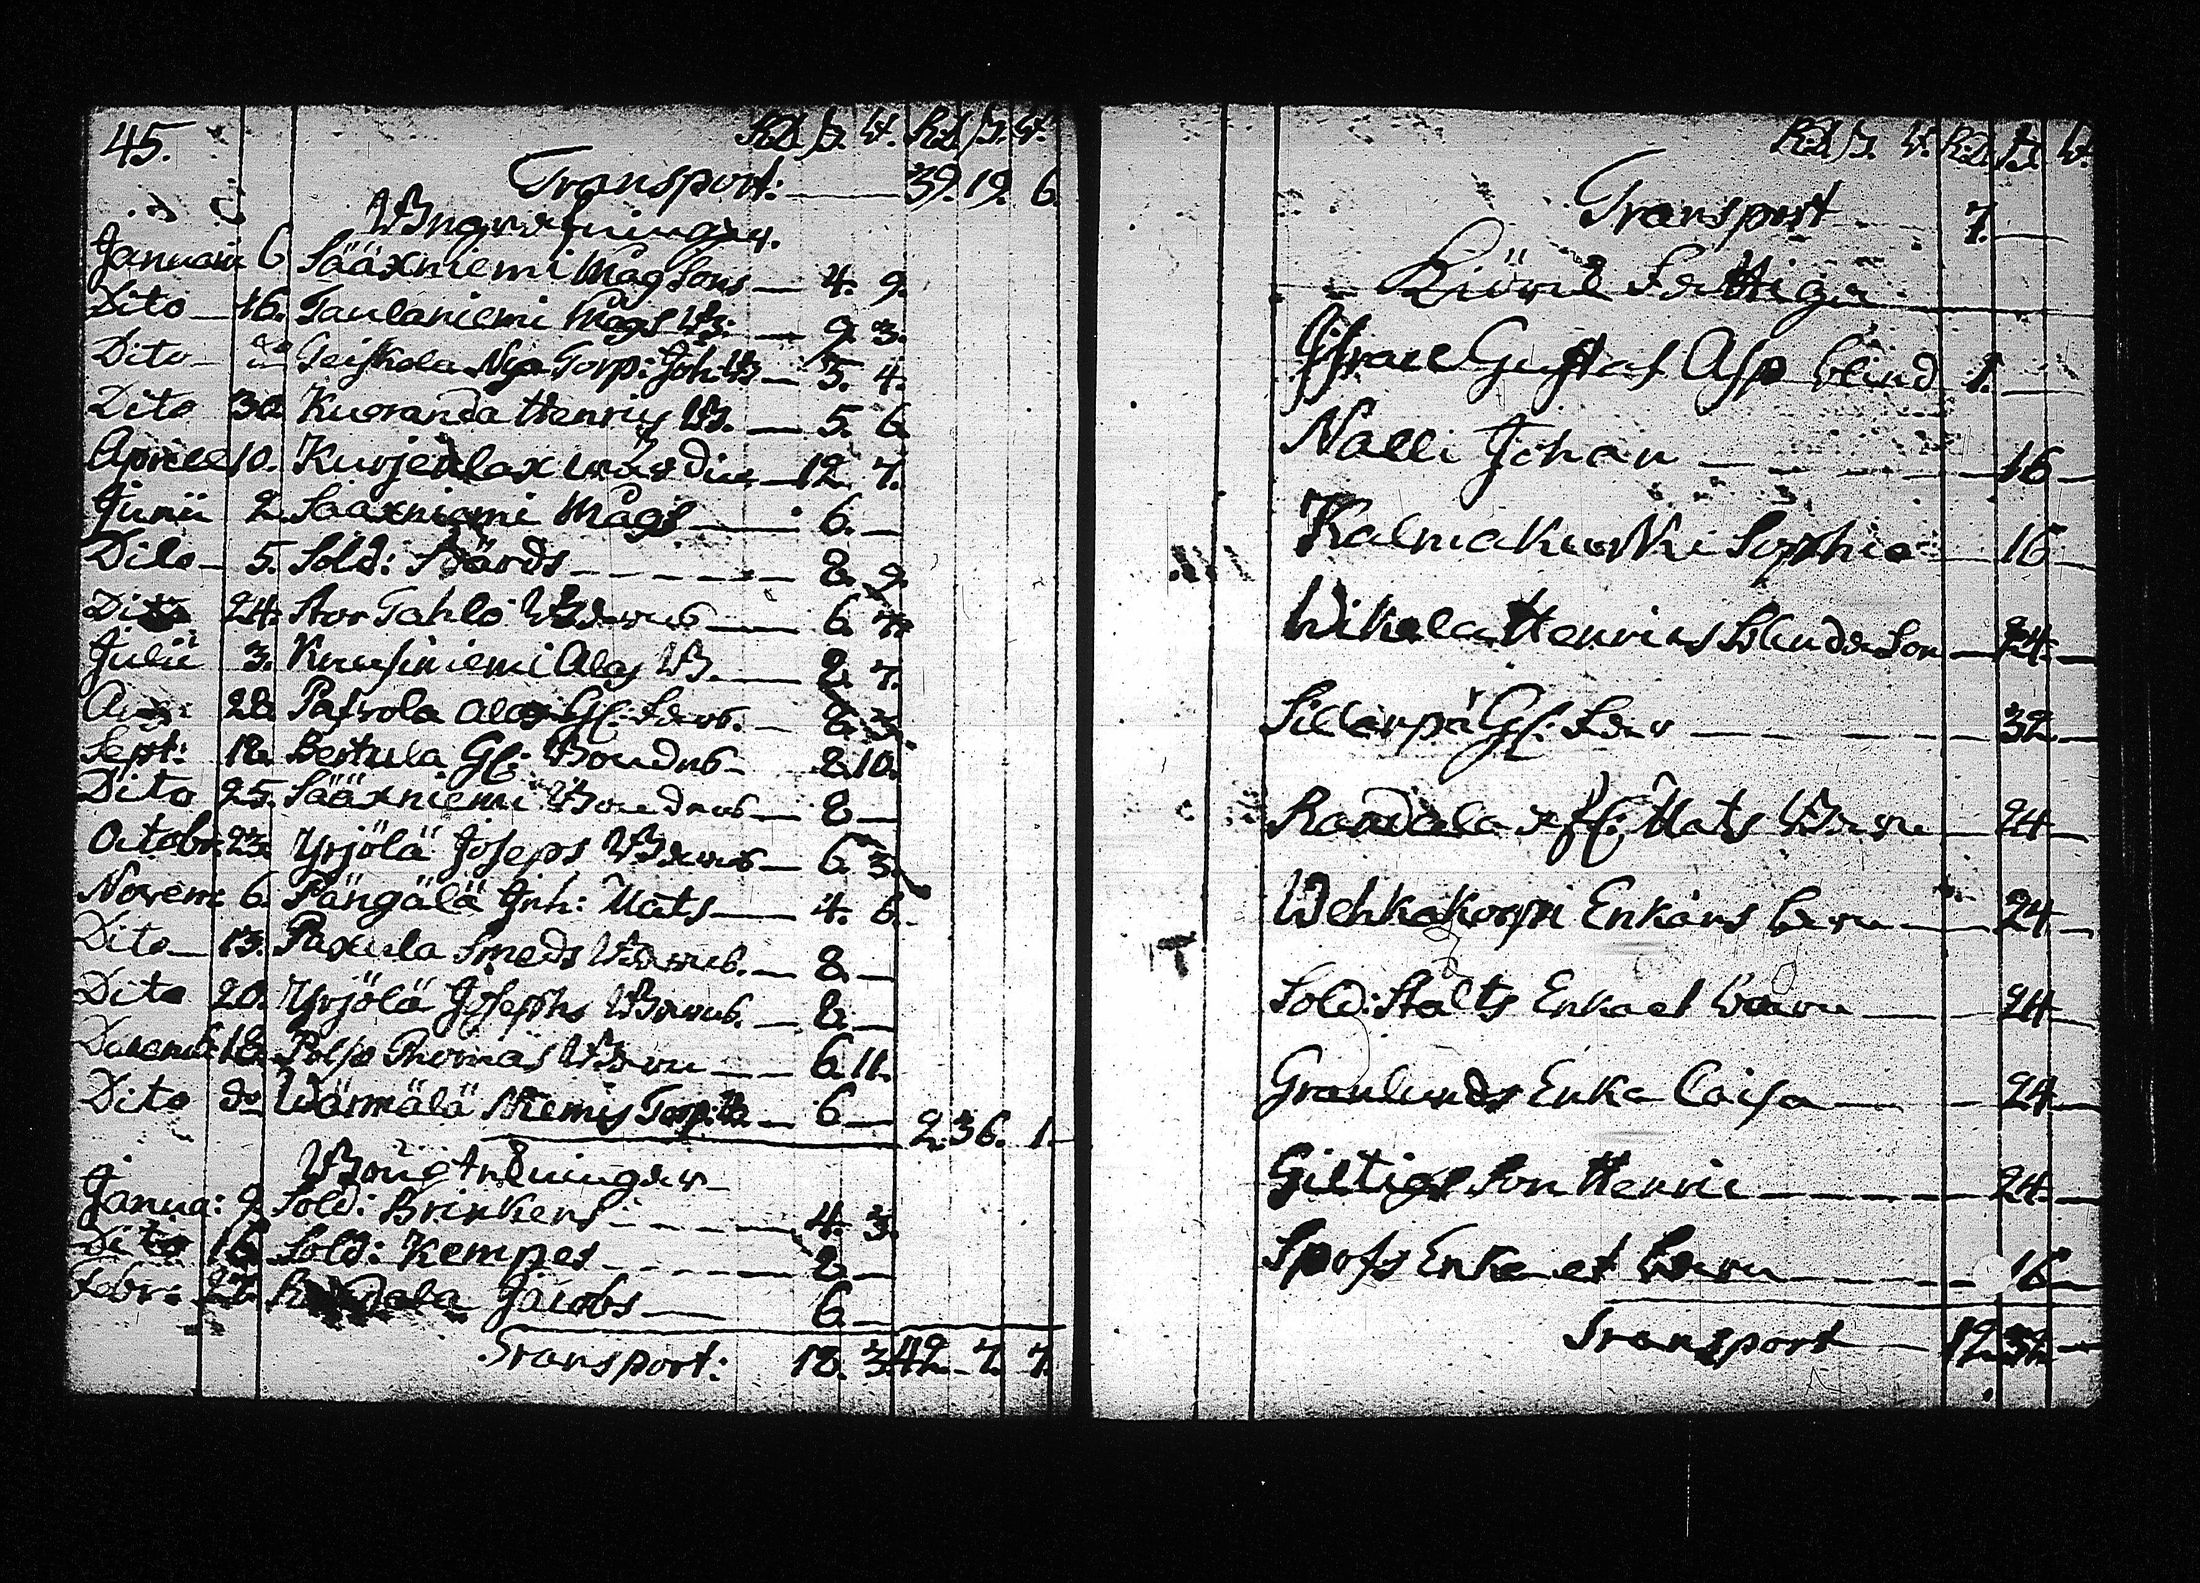 45. RD. ß. W. RD. ß. W.
Transport: — 39. 19. 6.
Begrafningar.
Januarii 6 Sääxniemi Mågsons — 4. 9.
Dito — 16. Taulaniemi Mågs B: — 9. 3.
Dito — do Teiskola Nya Torp: Joh: B — 5. 4.
Dito 30 Kuoranda Henrics B. — 5. 6.
Aprill 10. Kurjenlax — 12. 7.
Junii 2. Sääxniemi Mågs — 6. —
Dito — 5. Sold: Bärds — 8. 9.
Dito 24. Stor Tahlo Barns — 6. 7.
Julii 3. Kuusiniemi Alas B. — 8. 7.
Aug: 28. Pafvola Gl: Fars. — 8. 3.
Sept: 18. Bertula Gl: Bondes — 8. 10.
Dito 25. Sääxniemi Bondens — 8. —
Octobr: 23. Yrjölä Josephs Barns — 6. 3.
Novem: 6. Pängälä Inh: Mats — 4. 6.
Dito — 13. Paxula Smeds Barns. — 8. —
Dito 20. Yrjölä Josephs Barns. — 8. —
Decemb: 18. Thomas Barn — 6. 11.
Dito do Wärmälä Niemis Torp: B. — 6. — 2. 36. 1.
Januа: 9. Sold: Brinkens — 4. 3.
Dito 16. Sold: Kempes — 8. —
Febr: Jacobs — 6. —
Transport: 18. 3. 42. 7. 7.
RD. ß. W. RD. ß. W.
Transport — 7. —
Fattiga
Israel Gustaf Asp blind 1. —
Nalli Johan — 16 —
Kalmakurki Sophia — 16 —
Wikala Henrics blinda Son — 24. —
Sillanpä Gl: Far — 32. —
Randala Mats Barn — 24 —
Wehkakorpi Enkans barn — 24 —
Sold: Stålts Enka et barn — 24 —
Granlunds Enka Caisa — 24 —
Giltigs Son Henric — 24. —
Spofs Enka et barn — 16 —
Transport — 12. 32. —